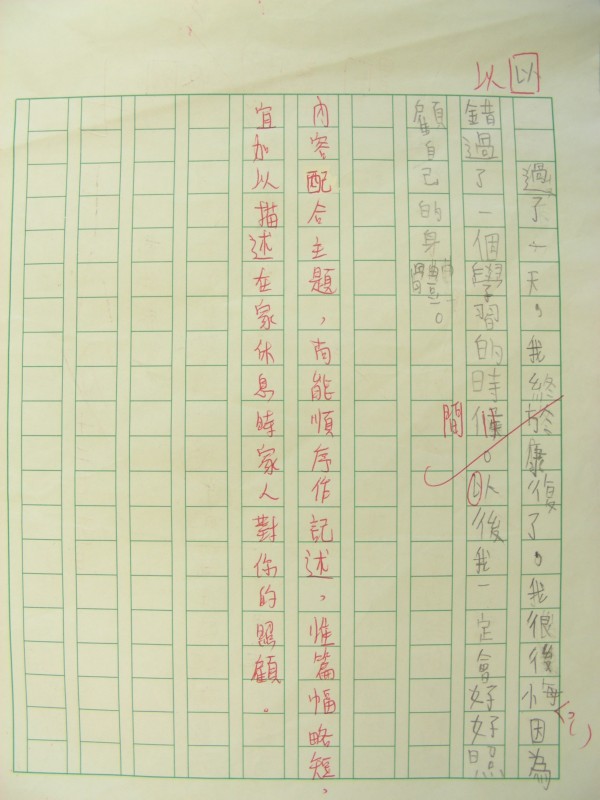 以以
過了一天，我終於康復了。我很後悔，因為
錯過了一個學習的時候。以後我一定會好好照
間
顧自己的身體。
內容配合主題，尚能順序作記述，惟篇幅略短，
宜加以描述在家休息時家人對你的照顧。